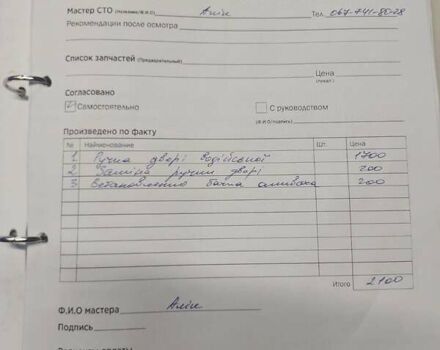 Мастер СТО (позывной/Ф.И.О) Тел. 067-741-80-28
Рекомендации после осмотра
Список запчастей (Предварительный)
Цена
Согласовано
☑ Самостоятельно ☐ С руководством
(Ф.И.О/подпись)
Произведено по факту
№ Наименование Шт. Цена
1 Ручка двері водійської 1700
2 Заміна ручки двері 200
3 Встановлення бачка омивача 200
Итого 2100
Ф.И.О мастера
Подпись